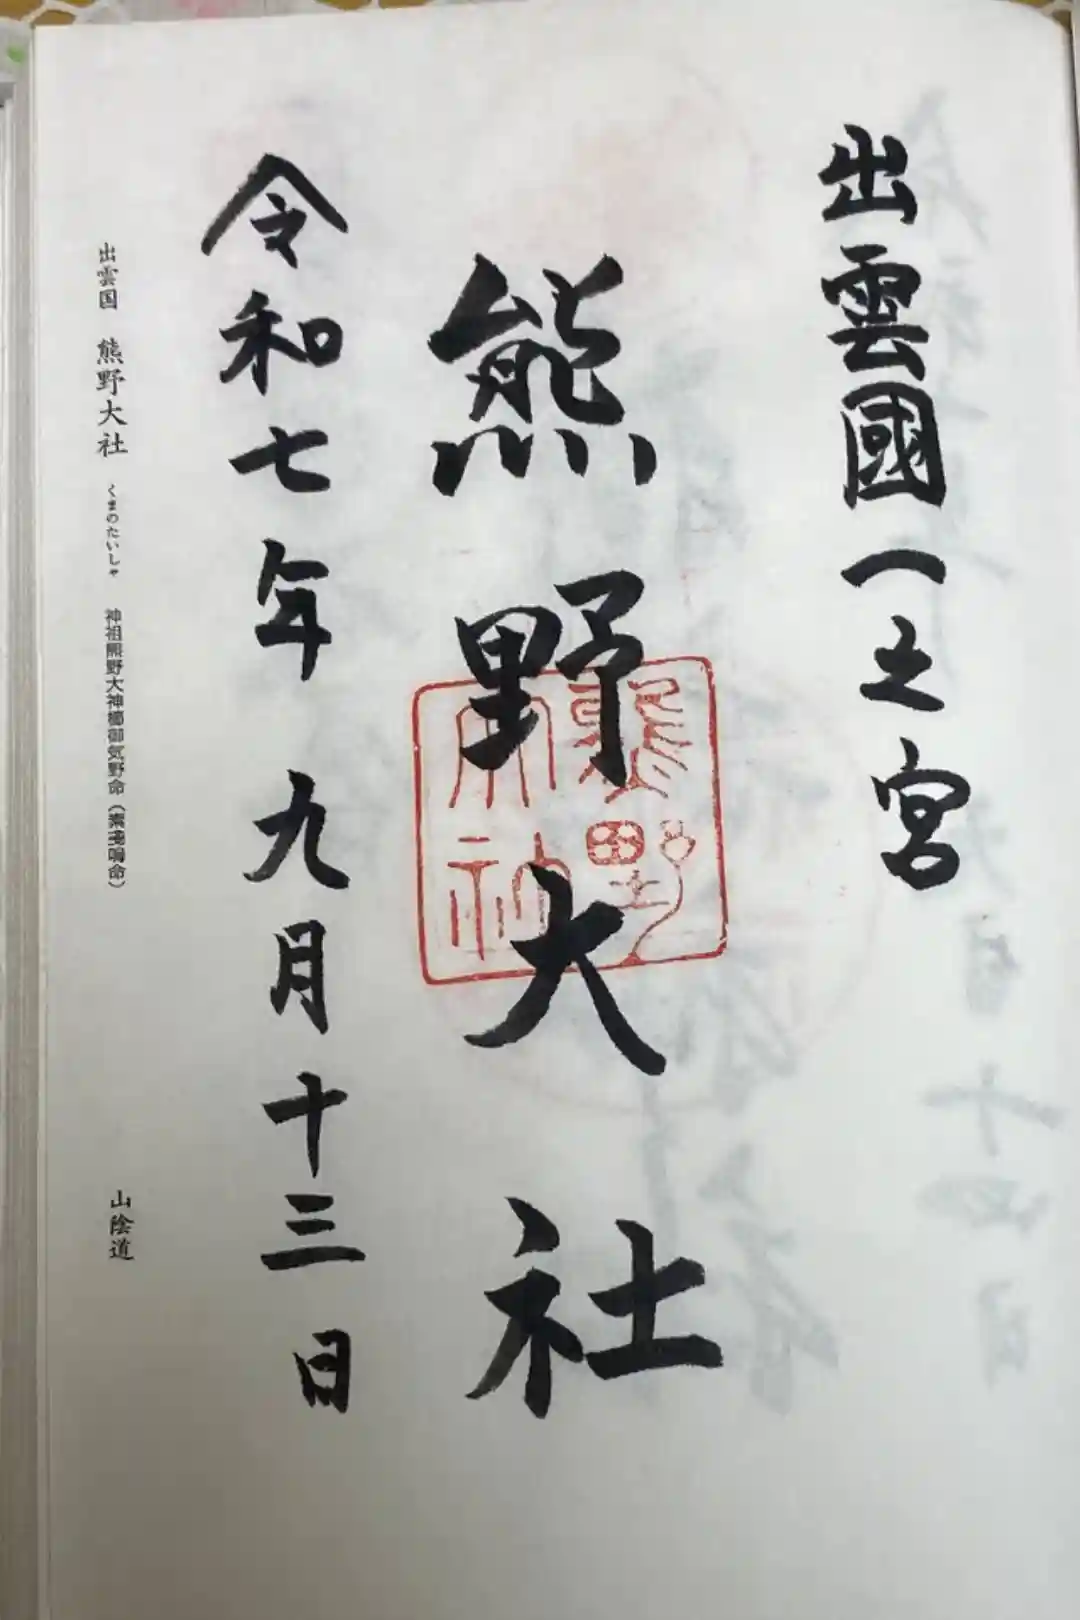 出雲國一之宮
熊野大社
熊野大社
令和七年九月十三日
出雲国 熊野大社 くまのたいしゃ 神祖熊野大神櫛御気野命（素戔嗚命） 山陰道